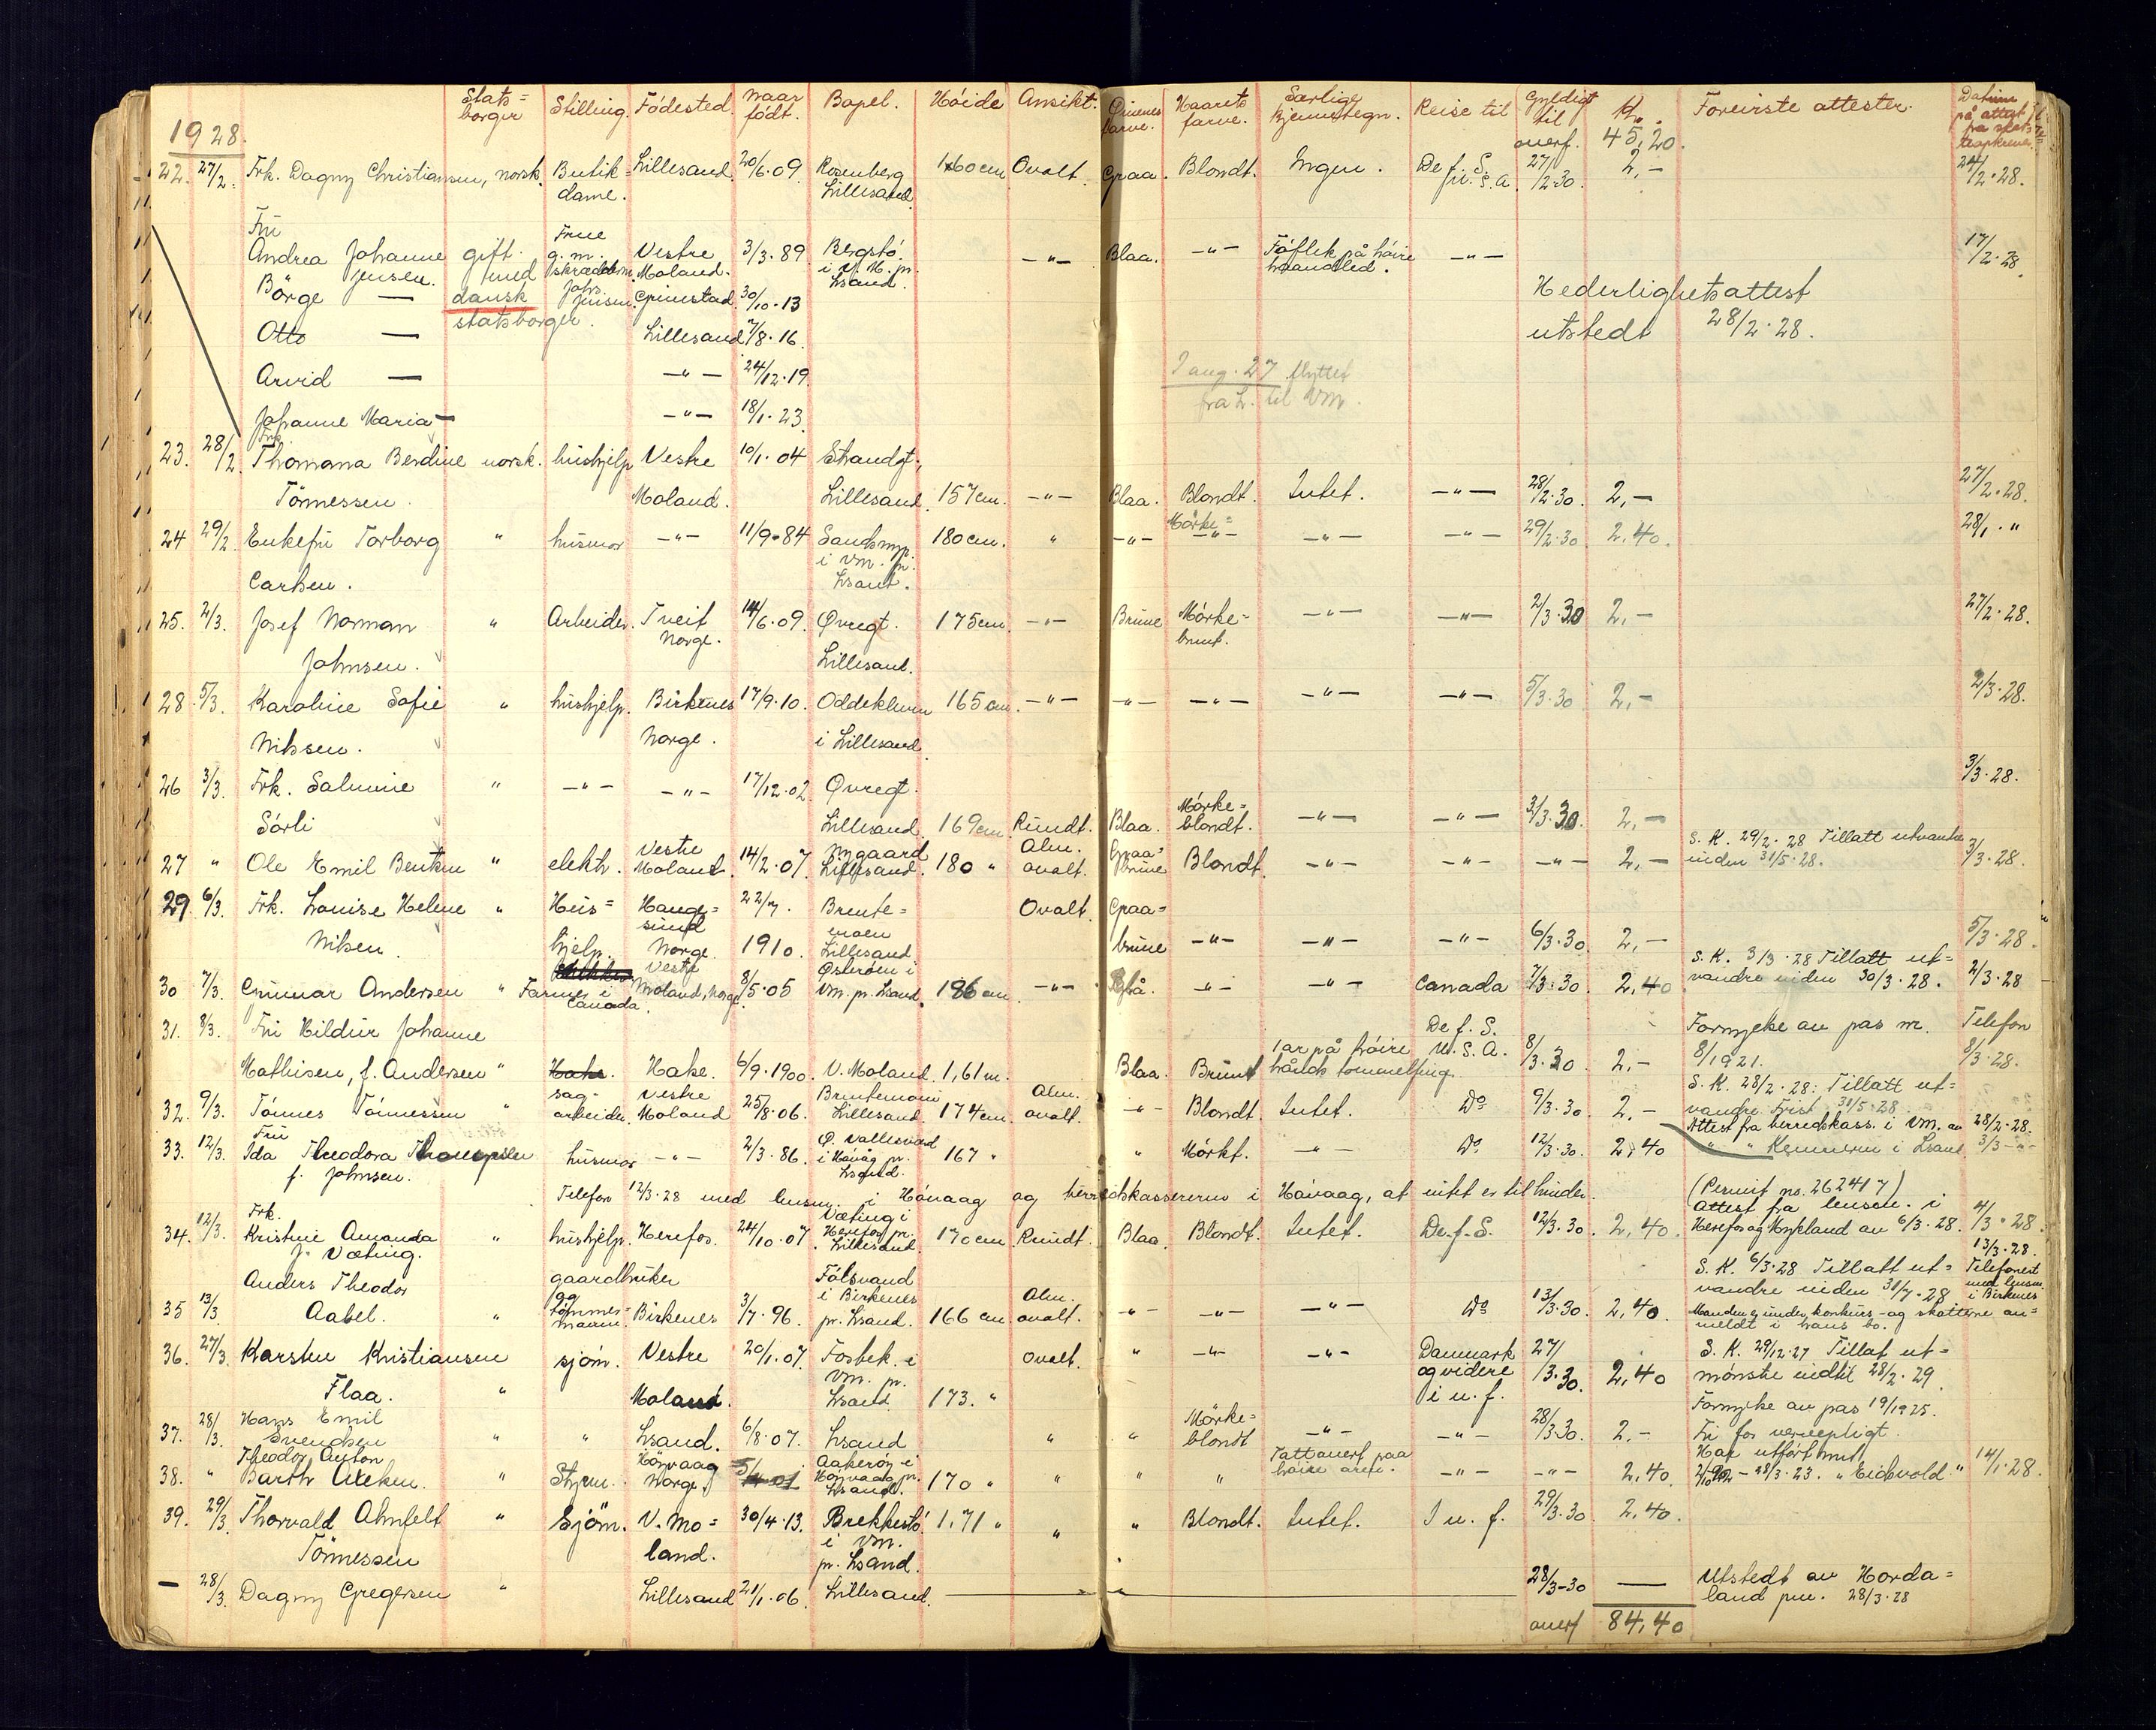 Stats= borger Stilling. Födested. Naar födt. Bopel. Höide Ansikt. Öinenes farve. Haarets farve. Særlige kjennetegn. Reise til Gyldigt til Kr. Foreviste attester. Datum på attest fra
1928. overf. 45,20.
22. 27/2. Frk. Dagny Christiansen, norsk. Butik= dame. Lillesand. 20/6.09. Rosenberg Lillesand. 160 cm Ovalt. Graa. Blondt. Ingen. De f. S. U.S.A. 27/2.30. 2,- 24/2.28.
Fru
Andrea Johanne Jensen. gift med dansk statsborger. Frue g.m. skrædderm. Johs. Jensen. Vestre Moland. 3/3.89 Bergstö. i V.M. pr. Lsand. -"- Blaa. -"- Föflek på höire haandled. -"- 17/2.28.
Börge — Grimstad. 30/10.13
Hederlighetsattest
utstedt 28/2.28.
Otto — Lillesand 7/8.16.
Arvid — -"- 24/12.19.
I aug. 27 flyttet
fra L. til VM.
Johanne Maria — -"- 18/1.23.
23. 28/2. Frk. Thomana Berdine Tönnessen. norsk. hushjelp Vestre Moland. 10/1.04 Strandgt., Lillesand. 157 cm. -"- Blaa. Blondt. Intet. -"- 28/2.30. 2,- 27/2.28.
24 29/2. Enkefru Torborg Carlsen. " husmor -"- 11/9.84 i VM. pr. Lsand. 180 cm. " -"- Mörke= -"- -"- -"- 29/2.30. 2,40. 28/1. "
25. 2/3. Josef Norman Johnsen. " Arbeider. Tveit Norge. 14/6.09. Øvregt. Lillesand. 175 cm. -"- Brune Mörke= brunt. -"- -"- 2/3.30 2,- 27/2.28.
28. 5/3. Karoline Sofie Nilssen. " hushjelp. Birkenes Norge. 17/9.10. Oddeklum i Lillesand. 165 cm. -"- -"- -"- -"- -"- 5/3.30 2,- 2/3.28.
26 3/3. Frk. Salmine Sörli " -"- -"- 17/12.02 Øvregt. Lillesand. 169 cm. Rundt. Blaa. Mörke= blondt. -"- -"- 3/3.30. 2,- 3/3.28.
27 " Ole Emil Bentsen " elektr. Vestre Moland. 14/2.07. Nygaard Lillesand. 180 " Alm. ovalt. Graa= brune Blondt. -"- -"- -"- 2,- S. K. 29/2.28 Tillatt utvandre inden 31/5.28. 3/3.28.
29. 6/3. Frk. Louise Helene Nilsen. " Hus= hjelp. Hauge= sund Norge. 22/7. 1910. Brente= moen Lillesand Ovalt. Graa= brune -"- -"- -"- 6/3.30. 2,- 5/3.28.
30 7/3. Gunnar Andersen " Farmer i Canada. Vestre Moland, Norge. 8/5.05 Österöen i VM. pr. Lsand. 186 cm -"- Blå. -"- -"- Canada 7/3.30. 2,40 S. K. 3/3.28 Tillatt ut= vandre inden 30/3.28. 2/3.28
31. 8/3. Fru Hildur Johanne Mathisen, f. Andersen " Hake. 6/9.1900. V. Moland. 1,61 m. Blaa. Brunt 1 ar på höire hånds tommelfing. De f. S. U.S.A. 8/3.30 2,- Fornyelse av pas nr. 8/1921. Telefon 8/3.28.
32. 9/3. Tönnes Tönnessen " sag- arbeider. Vestre Moland 25/8.06. Brentemoen Lillesand. 174 cm. Alm. ovalt. -"- Blondt. Intet. Do 9/3.30. 2,- S. K. 28/2.28: Tillatt ut= vandre Frist 31/5.28.
33. 12/3. Fru Ida Theodora Thompsen f. Johnsen. husmor -"- 2/3.86. Ø. Vallesverd i Høvåg pr. Lsand. 167 " " Mörkt. -"- Do 12/3.30. 2,40 Attest fra herredskass. i VM. av 28/2.28. " " Kemneren i Lsand 3/3-"-
Telefon 12/3.28 med lensm. i Hövaag og herredskassereren i Hövaag, at intet er til hinder.
34. 12/3. Frk. Kristine Amanda J. Væting. " hushjelp. Herefos. 24/10.07. Væting i Herefos pr. Lillesand. 170 cm Rundt. Blaa. Blondt. Intet. De.f.S. 12/3.30. 2,40. (Permit no. 262417) Attest fra lensm. i Herefos og Vegusland av 6/3.28. 4/3.28
35 13/3. Anders Theodor Aabel. " gaardbruker og tömmer= mann. Birkenes 3/7.96. Fölsvand i Birkenes pr. Lsand. 166 cm Alm. ovalt. -"- -"- -"- Do 13/3.30. 2,40. S. K. 6/3.28 Tillatt ut= vandre inden 31/7.28 Manden er under konkurs - og skattene an= meldt i hans bo. 13/3.28. Telefonert med lensm. i Birkenes
36. 27/3. Karsten Kristiansen Flaa. " sjöm. Vestre Moland. 20/1.07. Fosbek i VM. pr. Lsand. 173. " Ovalt. " -"- -"- Danmark og videre i u. f. 27/3.30. 2,40 S. K. 29/12.27 Tillat ut= mönstre indtil 28/2.29.
37. 28/3. Hans Emil Svendsen " " Lsand. 6/8.07. Lsand " " Mörke= blondt -"- -"- 28/3.30. 2,- Fornyelse av pas 19/1925. Fri for vernepligt.
38. " Theodor Anton Barth Axelsen. " Styrm. Hövaag Norge. Aakerøy i Hövaag pr. Lsand. 170 " " " Tattovert paa höire arm. -"- -"- 2,40. Har utfört mil. - 28/3.23. "Eidsvold" 14/1.28.
39. 29/3. Thorvald Ahnfelt Tönnessen " Sjöm. V. Mo= land. 30/4.13. Brekkestö i VM. pr. Lsand. 1,71 " " " Blondt. Intet. I u. f. 29/3.30 2,40.
— 28/3. Dagny Gregersen " Lillesand 21/1.06. Lillesand. 28/3-30 — Utstedt av Horda= land pm. 28/3.28
overf 84,40